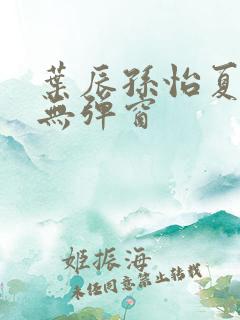 葉辰孫怡夏
無彈窗
姬振海
未经同意禁止转载